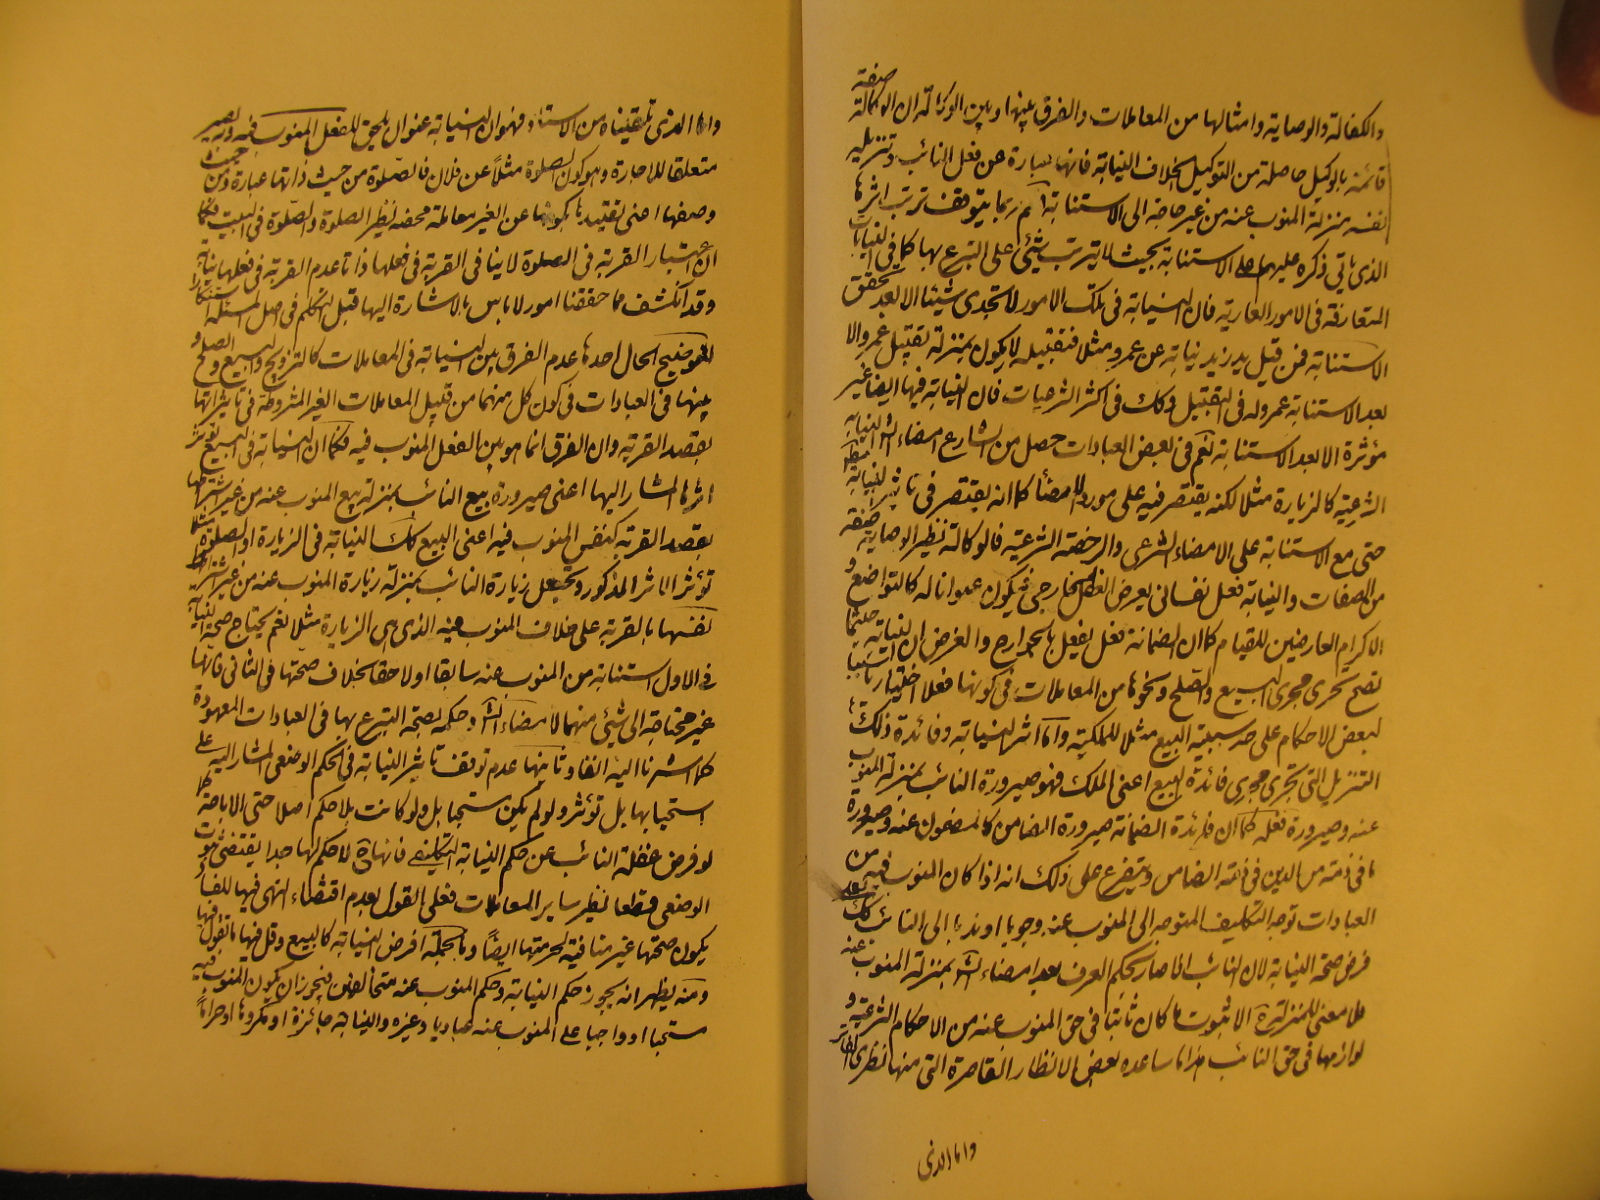 والكفالة والوصاية وامثالها من المعاملات والفرق بينها وبين الوكالة ان الوكالة صفة
قائمة بالوكيل حاصلة من التوكيل بخلاف النيابة فانها عبارة عن فعل النائب وتنزيله
نفسه منزلة المنوب عنه من غير حاجة الى الاستنابة نعم ربما يتوقف ترتب اثرها
الذى ياتى ذكره عليها على الاستنابة بحيث لا يترتب شيئ على التبرع بها كما فى النيابات
المتعارفة فى الامور العادية فان النيابة فى تلك الامور لا تجدى شيئا الا بعد تحقق
الاستنابة فمن قبل يد زيد نيابة عن عمرو مثلا فتقبيله لا يكون بمنزلة تقبيل عمرو الا
بعد الاستنابة عمرو له فى التقبيل وكك فى اكثر الشرعيات فان النيابة فيها ايضا غير
مؤثرة الا بعد الاستنابة نعم فى بعض العبادات حصل من الشارع امضاء النيابة
الشرعية كالزيارة مثلا لكنه يقتصر فيه على مورد الامضاء كما انه يقتصر فى تاثير النيابة
حتى مع الاستنابة على الامضاء الشرعى والرخصة الشرعية فالوكالة نظير الوصاية صفة
من الصفات والنيابة فعل نفسانى يعرض الفعل الخارجى فيكون عنوانا له كالتواضع و
الاكرام العارضين للقيام كما ان الضمانة فعل يفعل بالجوارح والغرض ان النيابة حيثما
تصح تجرى مجرى البيع والصلح ونحوها من المعاملات فى كونها فعلا اختياريا سببا
لبعض الاحكام على حد سببية البيع مثلا للملكية واما اثر النيابة وفائدة ذلك
التنزيل التى تجرى مجرى فائدة البيع اعنى الملك فهو صيرورة النائب بمنزلة المنوب
عنه وصيرورة فعله كما ان فائدة الضمانة صيرورة الضامن كالمضمون عنه وصيرورة
ما فى ذمته من الدين فى ذمة الضامن ويتفرع على ذلك انه اذا كان المنوب فيه من
العبادات توجه التكليف المتوجه الى المنوب عنه وجوبا او ندبا الى النائب كك
فرض صحة النيابة لان النائب لما صار بحكم العرف بعد امضاء الش بمنزلة المنوب عنه
فلا معنى للمنزلة الا ثبوت ما كان ثابتا فى حق المنوب عنه من الاحكام الشرعية و
لوازمها فى حق النائب هذا ما ساعده بعض الانظار القاصرة التى منها نظرى القاصر
واما الذى
واما الذى تلقيناه من الاستاد فهو ان النيابة عنوان يلحق للفعل المنوب فيه وبه يصير
متعلقا للاجارة وهو كون الصلوة مثلا عن فلان فالصلوة من حيث ذاتها عبادة ومن حيث
وصفها اعنى تقييدها بكونها عن الغير معاملة محضه نظير الصلوة والصلوة فى البيت فكما
ان اعتبار القربة فى الصلوة لا ينافى القربة فى فعلها ذاتا عدم القربة فى فعلها نيابة
وقد انكشف مما حققنا امور لا باس بالاشارة اليها قبل التكلم فى اصل المسئلة
لتوضيح الحال احدها عدم الفرق بين النيابة فى المعاملات كالتزويج والبيع والصلح و
بينها فى العبادات فى كون كل منهما من قبيل المعاملات الغير المشروطة فى تاثيراتها
بقصد القربة وان الفرق انما هو بين الفعل المنوب فيه فكما ان النيابة فى البيع تؤثر
اثرها المشار اليها اعنى صيرورة بيع النائب بمنزلة بيع المنوب عنه من غير اشتراطها
بقصد القربة كنفس المنوب فيه اعنى البيع كك النيابة فى الزيارة او الصلوة مثلا
تؤثر الاثر المذكور وتجعل زيارة النائب بمنزلة زيارة المنوب عنه من غير اشتراط
نفسها بالقربة على خلاف المنوب فيه الذى هى الزيارة مثلا نعم يحتاج صحة النيابة
فى الاول استنابة من المنوب عنه سابقا او لاحقا بخلاف صحتها فى الثانى فانها
غير محتاجة الى شيئ منهما لامضاء الش وحكمه بصحة التبرع بها فى العبادات المعهودة
كما اشرنا اليه انفا وثانيها عدم توقف تاثير النيابة فى الحكم الوضعى المشار اليه على
استحبابها بل تؤثر ولو لم يكن مستحبا بل ولو كانت بلا حكم اصلا حتى الاباحة كما
لو فرض غفلة النائب عن حكم النيابة التكليفى فانها ح لا حكم لها جدا يقتضى ثبوت
الوضعى قطعا نظير ساير المعاملات فعلى القول بعدم اقتضاء النهى فيها للفساد
يكون صحتها غير منافية لحرمتها ايضا وبالجملة افرض النيابة كالبيع وقل فيها ما تقول فيها
ومنه يظهر انه يجوز حكم النيابة وحكم المنوب عنه متخالفين فيجوز ان يكون المنوب فيه
مستحبا او واجبا على المنوب عنه عباديا وغيره والنيابة جائزة او مكروها او حراما